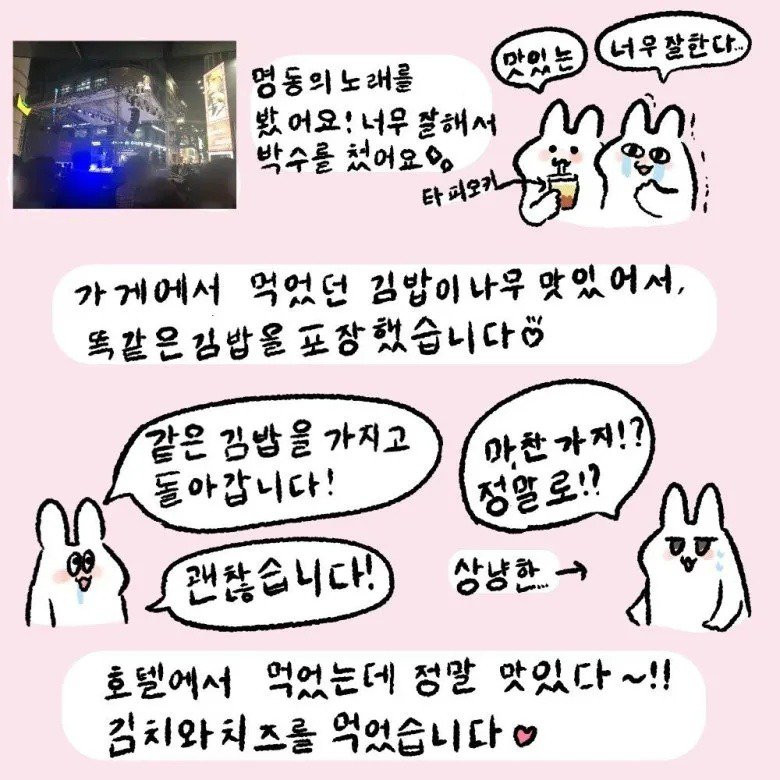 명동의 노래를
봤어요! 너무 잘해서
박수를 쳤어요
맛있는
너무 잘한다...
타피오카
가게에서 먹었던 김밥이 나무 맛있어서,
똑같은 김밥을 포장했습니다
같은 김밥을 가지고
돌아갑니다!
마찬가지!?
정말로!?
괜찮습니다!
상냥한...
호텔에서 먹었는데 정말 맛있다~!!
김치와 치즈를 먹었습니다